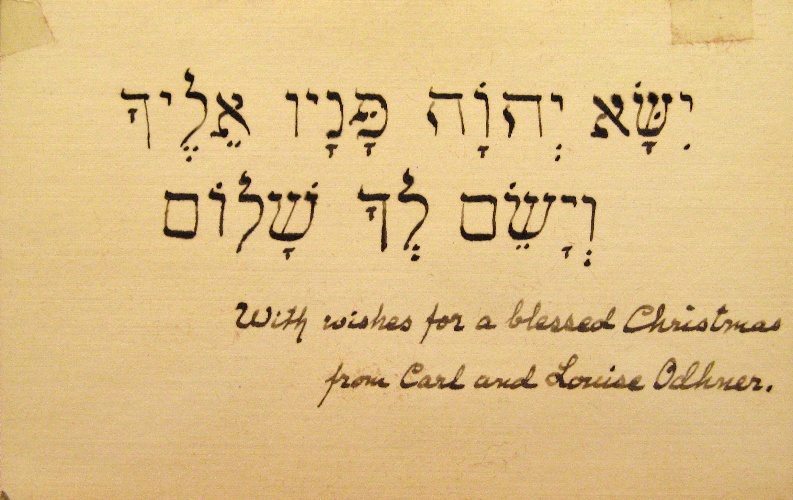 יִשָּׂא יְהוָֹה פָּנָיו אֵלֶיךָ
וְיָשֵׂם לְךָ שָׁלוֹם
With wishes for a blessed Christmas
from Carl and Louise Odhner.